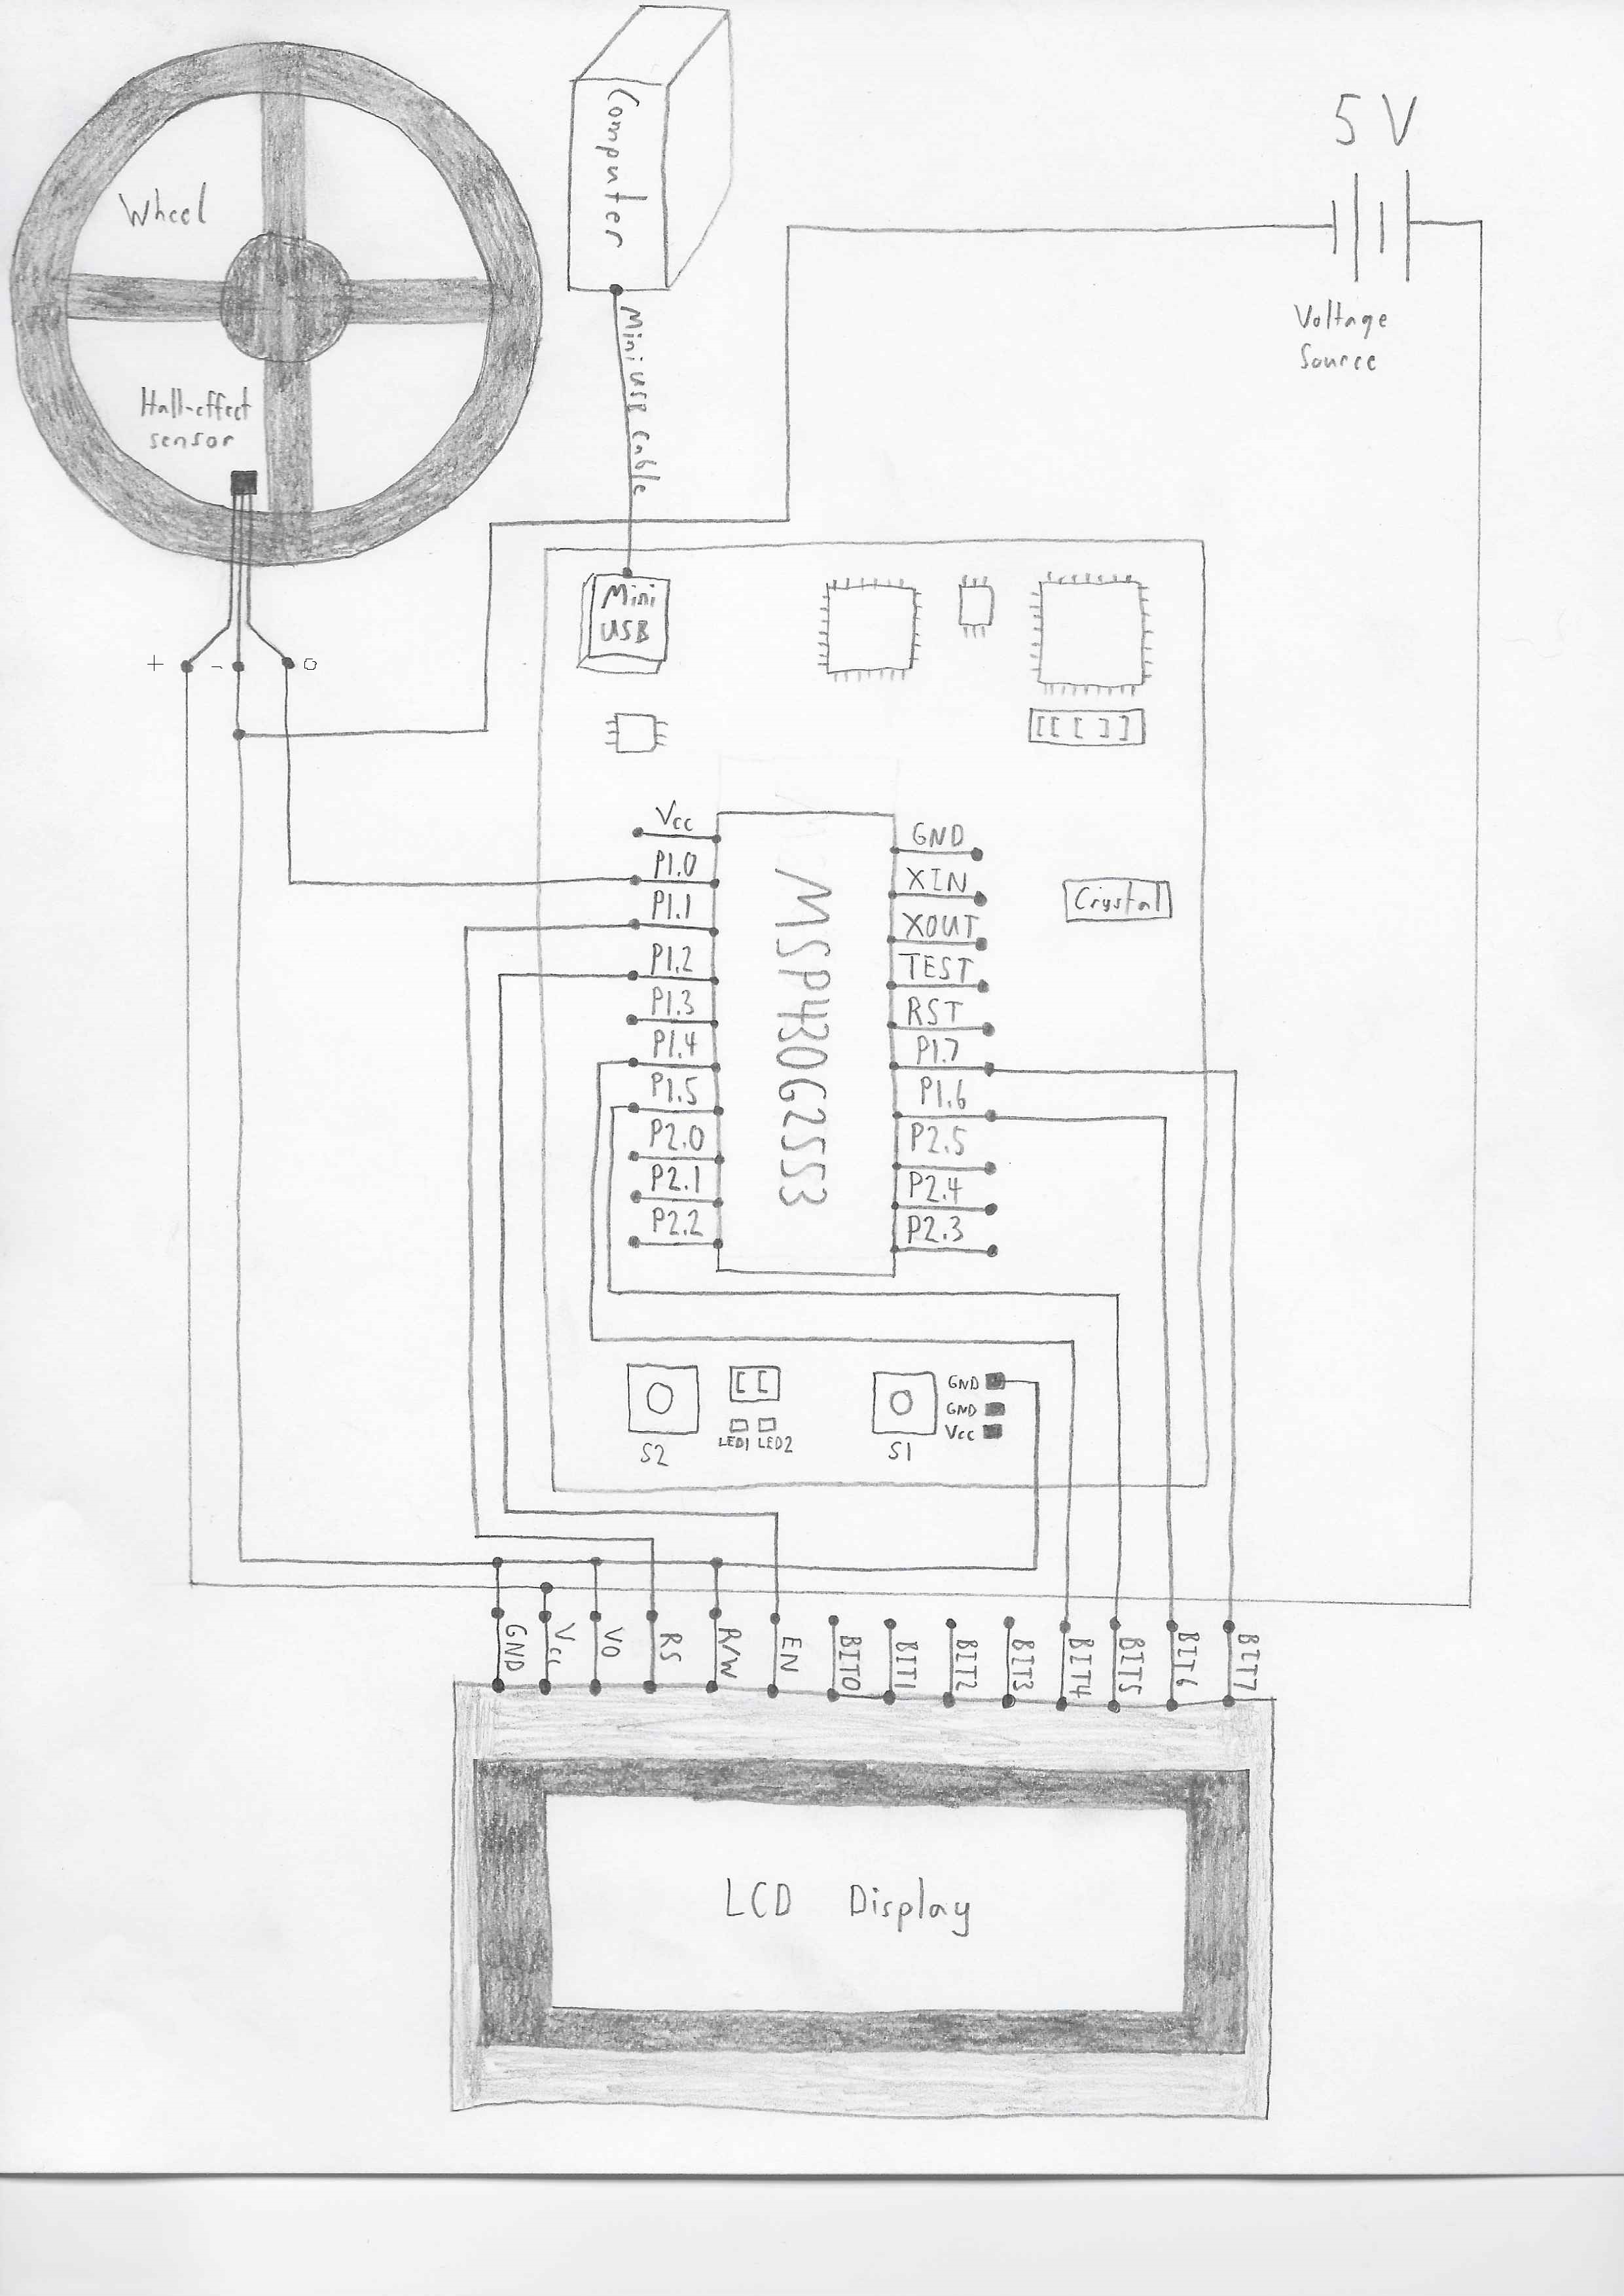 5 V
Voltage
Source
Computer
Wheel
Hall-effect
sensor
Mini USB Cable
Mini
USB
+
-
o
Vcc
P1.0
P1.1
P1.2
P1.3
P1.4
P1.5
P2.0
P2.1
P2.2
MSP430G2553
GND
XIN
XOUT
TEST
RST
P1.7
P1.6
P2.5
P2.4
P2.3
Crystal
S2
LED1 LED2
S1
GND
GND
Vcc
GND
Vcc
VO
RS
R/W
EN
BIT0
BIT1
BIT2
BIT3
BIT4
BIT5
BIT6
BIT7
LCD Display